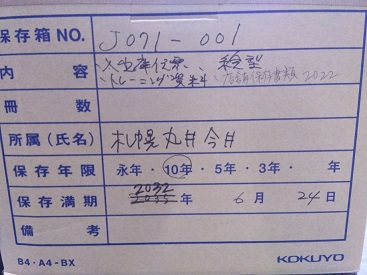 保存箱 NO. J071-001
内容 入出庫伝票、発型
トレーニング資料 店舗保存書類 2022
冊数
所属(氏名) 札幌丸井今井
保存年限 永年・10年・5年・3年・ 年
保存満期 2032年 6月 24日
備考
B4・A4-BX KOKUYO